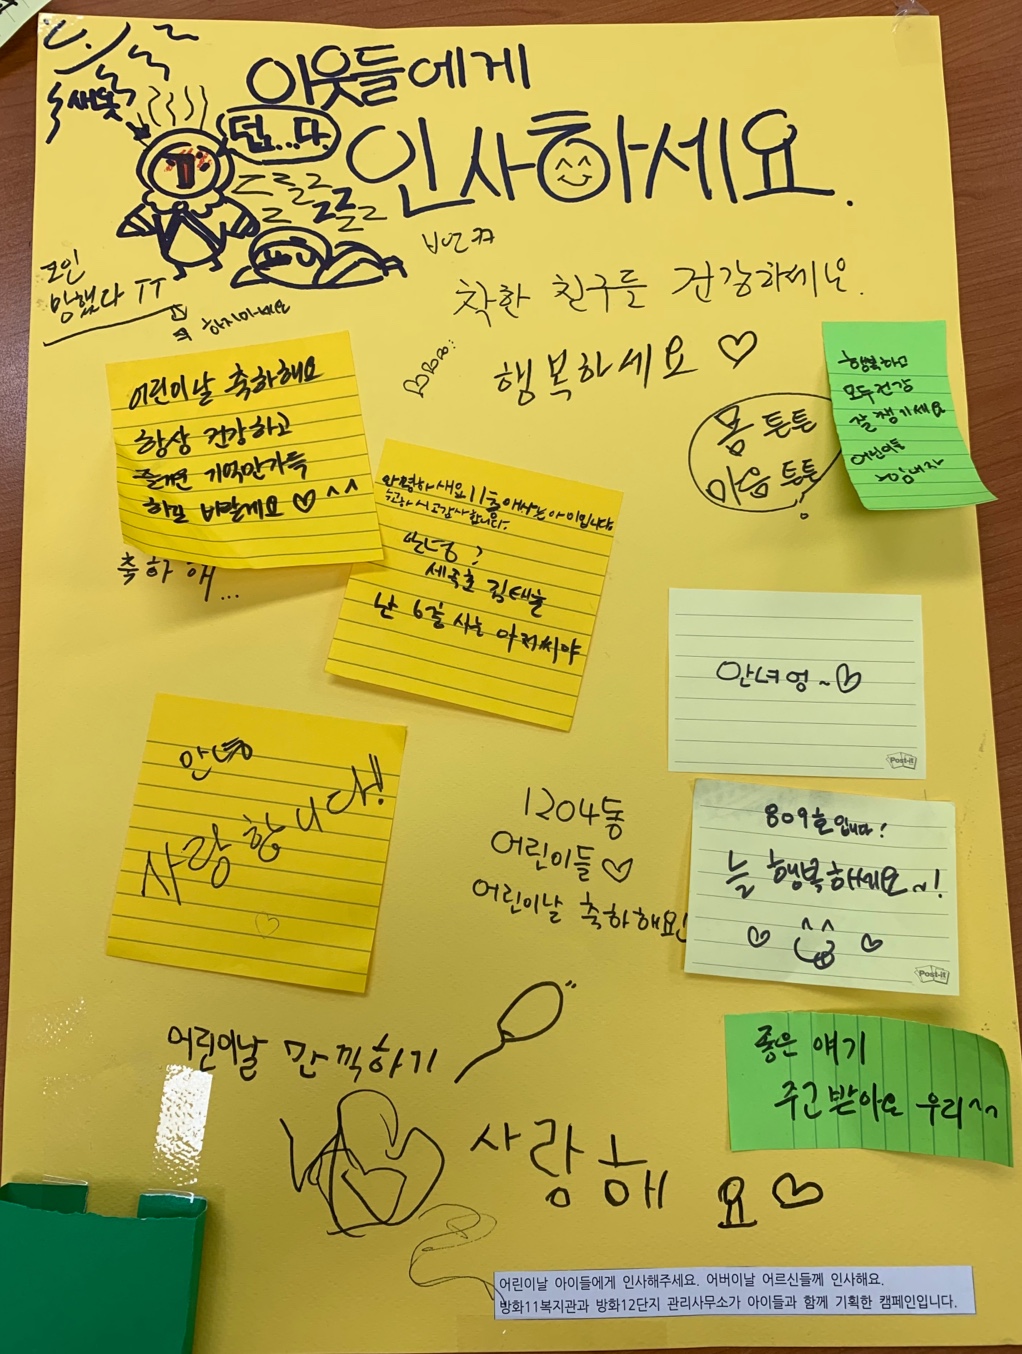 이웃들에게
인사하세요.
새옷?
덥...다.
zzz
코인
망했다 ㅠㅠ
하지마세요
착한 친구들 건강하세요.
행복하세요 ♡
어린이날 축하해요
항상 건강하고
즐거운 기억만 가득
하길 바랄게요 ♡^^
축하해...
몸 튼튼
마음 튼튼
행복하고
모두 건강
잘 챙기세요
어린이들
안녕하세요 11층에 사는 아이입니다
수고하시고 감사합니다.
안녕?
난 6층 사는 아저씨야
안녀엉~♡
안녕
사랑합니다!
♡
1204동
어린이들♡
어린이날 축하해요!
809호입니다!
늘 행복하세요~!
♡ ♡
Post-it
Post-it
어린이날 만끽하기
좋은 얘기
주고 받아요 우리^^
사랑해요♡
어린이날 아이들에게 인사해주세요. 어버이날 어르신들께 인사해요.
방화11복지관과 방화12단지 관리사무소가 아이들과 함께 기획한 캠페인입니다.